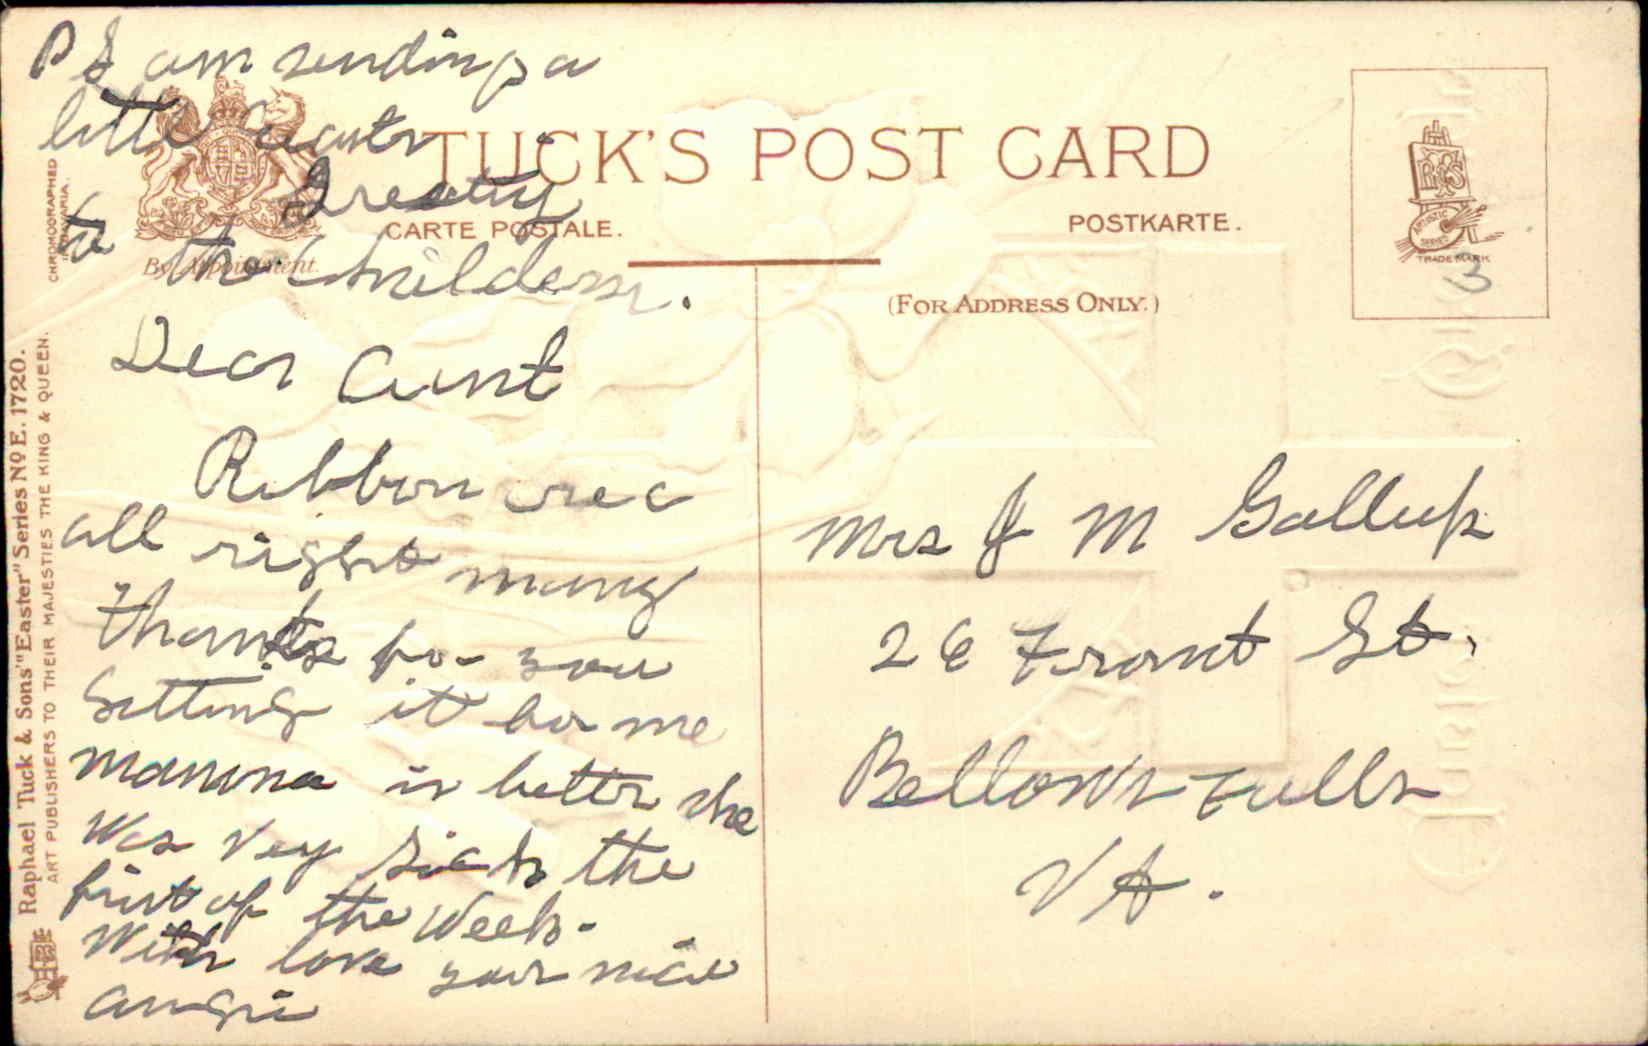 PS am sending a
little easter
Greeting
to the childern.
Dear Aunt
Ribbon rec
all right many
thanks for you
getting it for me
mamma is better she
was very sick the
first of the week.
With love your niece
angie
TUCK'S POST CARD
CARTE POSTALE.
POSTKARTE.
(FOR ADDRESS ONLY.)
By Appointment.
CHROMOGRAPHED
IN BAVARIA.
Raphael Tuck & Sons' "Easter" Series Nº E. 1720.
ART PUBLISHERS TO THEIR MAJESTIES THE KING & QUEEN.
ARTISTIC
SERIES
TRADE MARK
3
Mrs J M Gallup
26 Front St.
Bellows Falls
Vt.